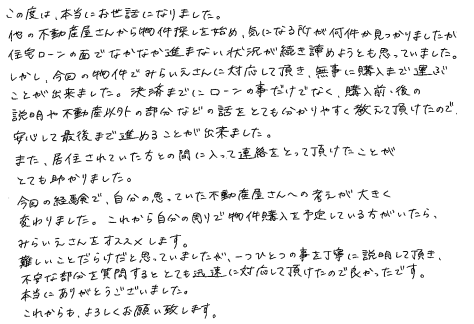 この度は、本当にお世話になりました。
他の不動産屋さんから物件探しを始め、気になる所が何件か見つかりましたが
住宅ローンの面でなかなか進まない状況が続き諦めようとも思っていました。
しかし、今回の物件でみらいえさんに対応して頂き、無事に購入まで運ぶ
ことが出来ました。決済までにローンの事だけでなく、購入前・後の
説明や不動産以外の部分などの話をとても分かりやすく教えて頂けたので、
安心して最後まで進めることが出来ました。
また、居住されていた方との間に入って連絡をとって頂けたことが
とても助かりました。
今回の経験で、自分の思っていた不動産屋さんへの考えが大きく
変わりました。これから自分の周りで物件購入を予定している方がいたら、
みらいえさんをオススメします。
難しいことだらけだと思っていましたが、一つひとつの事を丁寧に説明して頂き、
不安な部分を質問するととても迅速に対応して頂けたので良かったです。
本当にありがとうございました。
これからも、よろしくお願い致します。